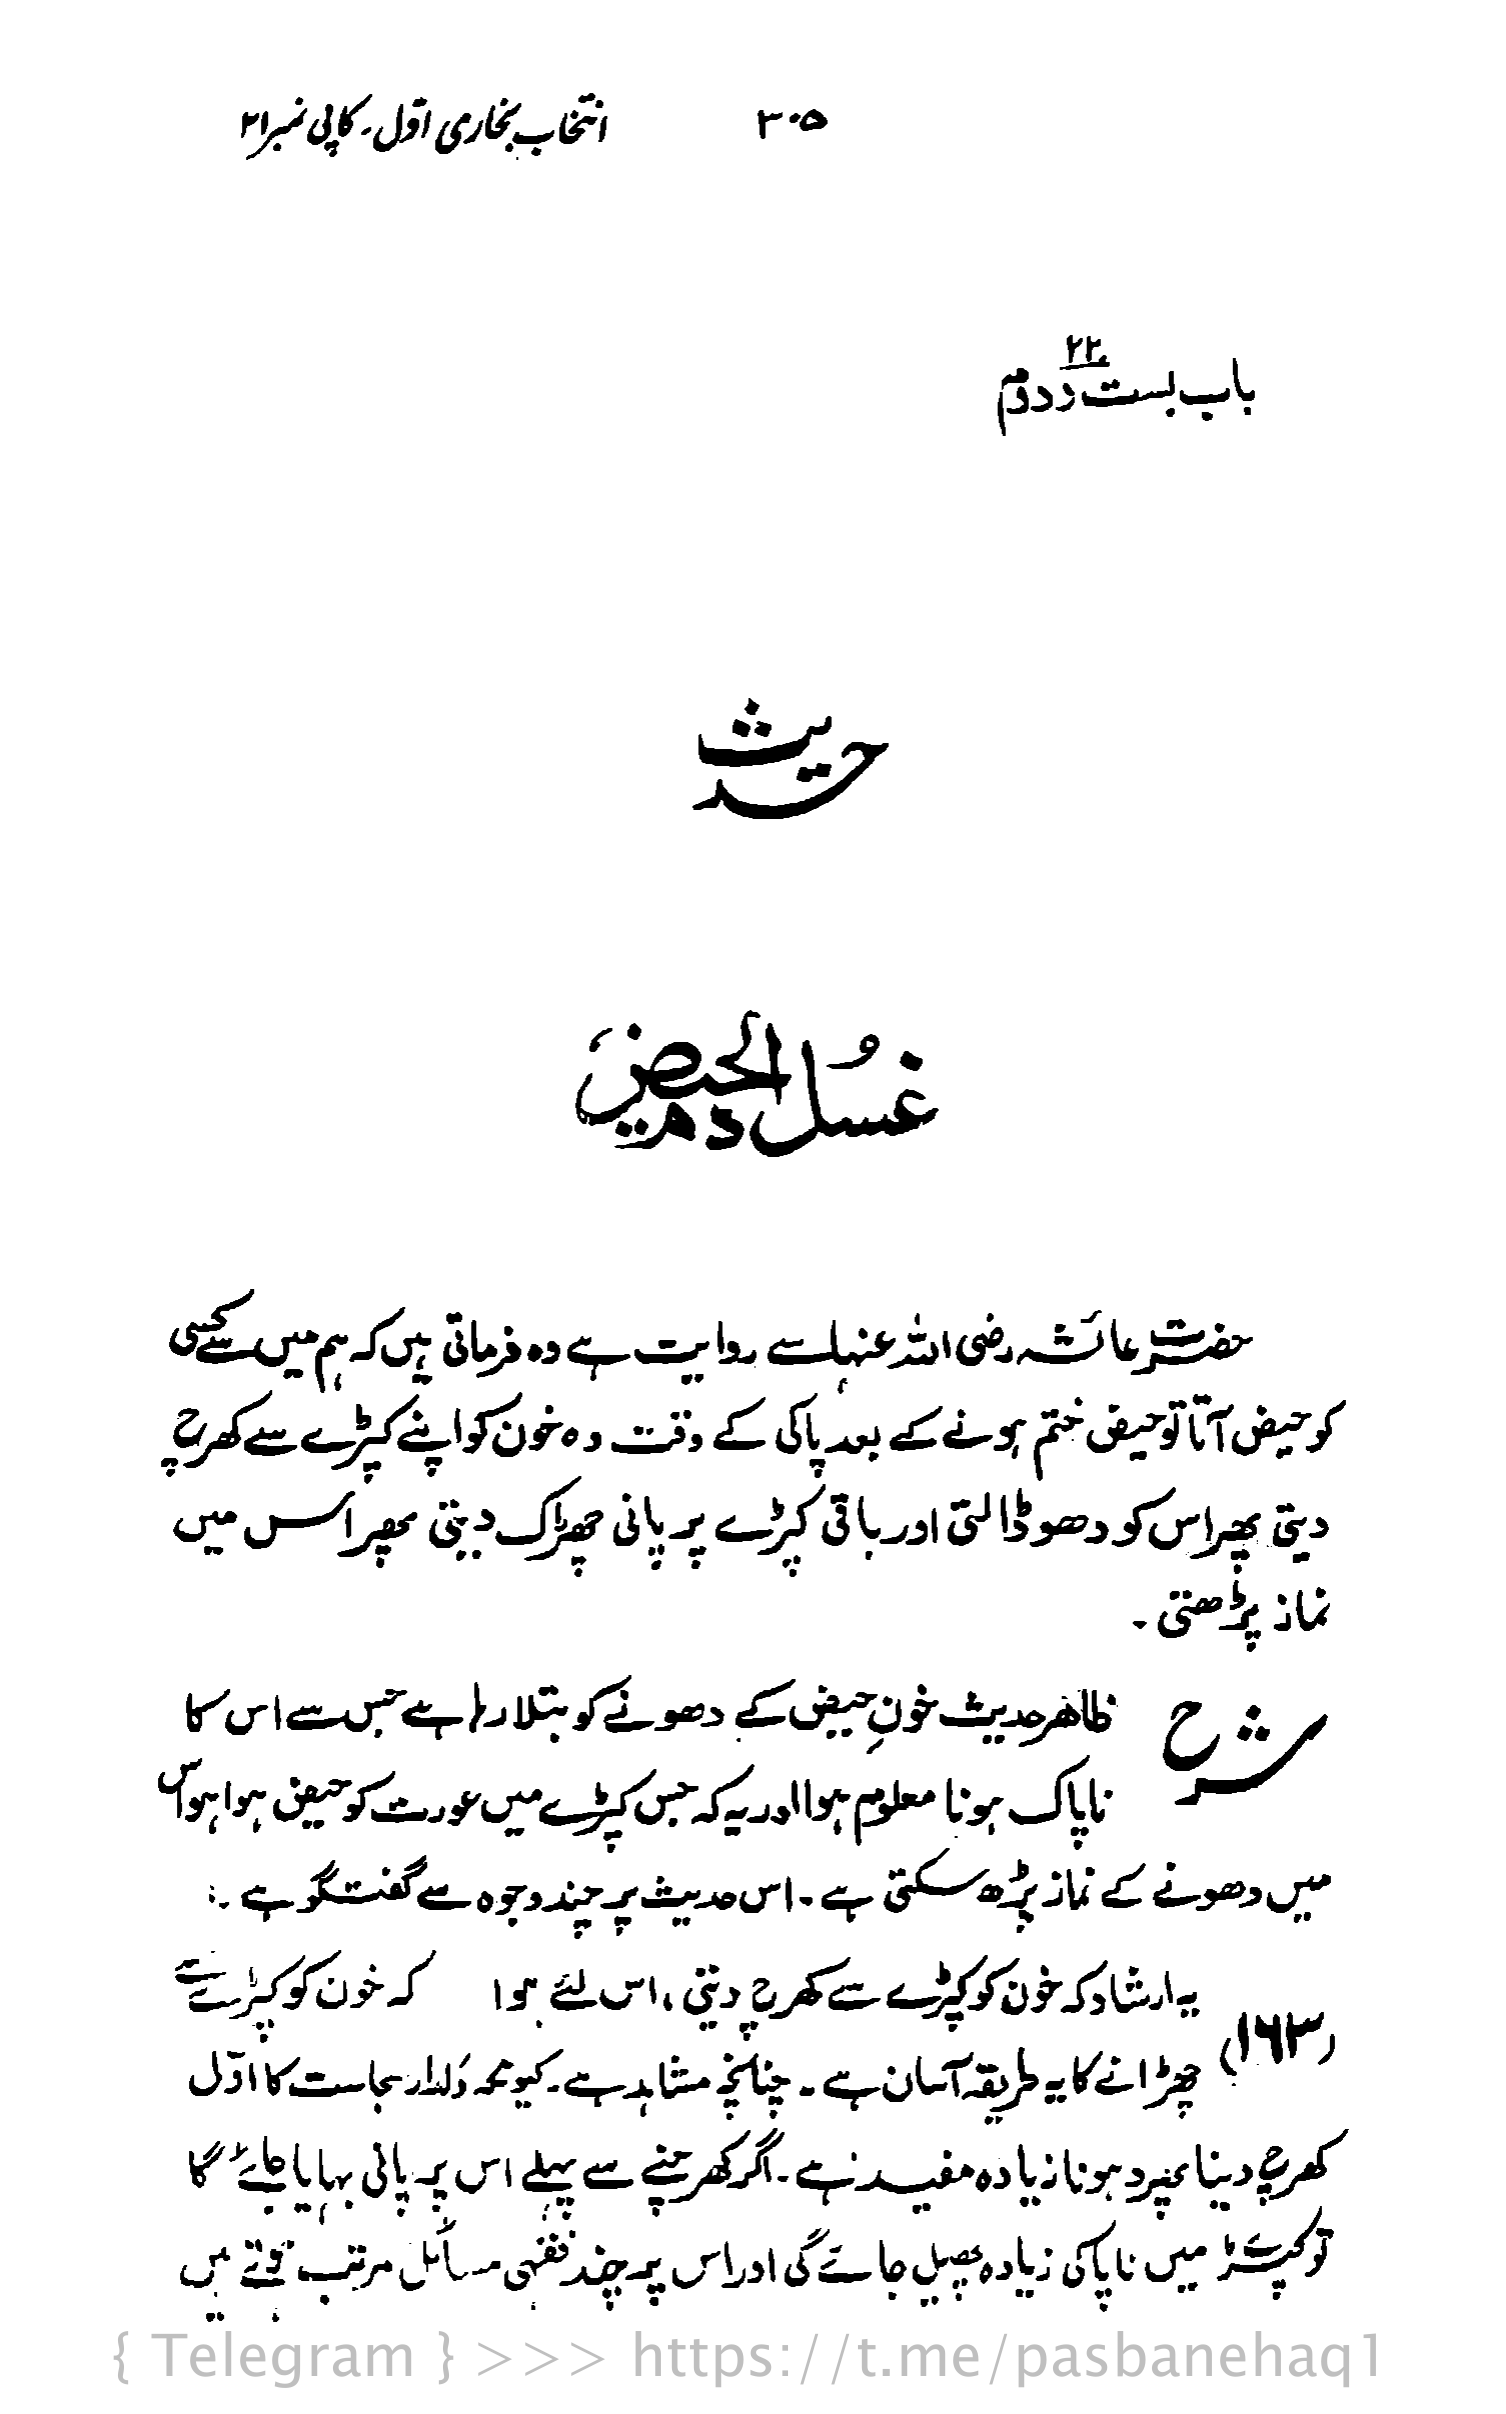 ۳۰۵ انتخاب بخاری اوّل۔ کاپی نمبر ۲۱
۲۲
باب بست ودوم
حدیث
غسلُ دم الحیض
حضرت عائشہ رضی اللہ عنہا سے روایت ہے وہ فرماتی ہیں کہ ہم میں سے کسی
کو حیض آتا تو حیض ختم ہونے کے بعد پاکی کے وقت وہ خون کو اپنے کپڑے سے کھرچ
دیتی پھر اس کو دھو ڈالتی اور باقی کپڑے پر پانی چھڑک دیتی پھر اس میں
نماز پڑھتی ۔
شرح ظاہر حدیث خونِ حیض کے دھونے کو بتلا رہا ہے جس سے اس کا
ناپاک ہونا معلوم ہوا اور یہ کہ جس کپڑے میں عورت کو حیض ہوا ہو اس
میں دھونے کے نماز پڑھ سکتی ہے ۔ اس حدیث پر چند وجوہ سے گفتگو ہے ۔:
(۱۶۳) یہ ارشاد کہ خون کو کپڑے سے کھرچ دیتی ، اس لئے ہوا کہ خون کو کپڑے سے
چھڑانے کا یہ طریقہ آسان ہے ۔ چنانچہ مشاہد ہے ۔ کیونکہ دَلدار نجاست کا اوّل
کھرچ دینا پھر دھونا زیادہ مفید ہے ۔ اگر کھرچنے سے پہلے اس پر پانی بہایا جائے گا
تو کپڑے میں ناپاکی زیادہ پھیل جائے گی اور اس پر چند فقہی مسائل مرتب ہوتے ہیں
{ Telegram } >>> https://t.me/pasbanehaq1